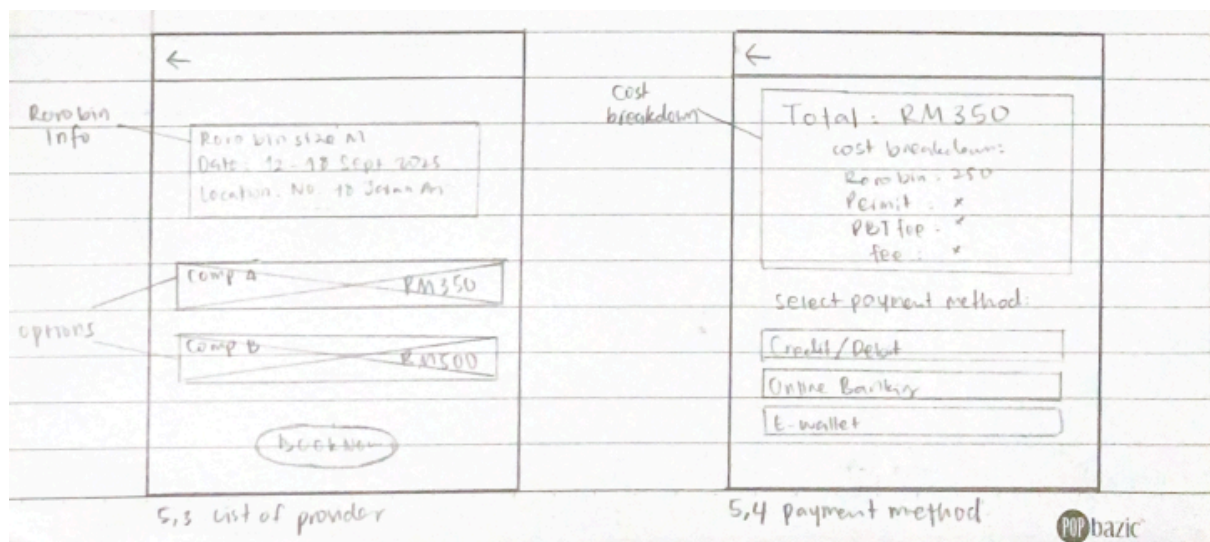 Roro bin
Info
Roro bin size A1
Date : 12 - 18 Sept 2025
Location : No. 10 Jalan
options
Comp A
RM350
Comp B
RM500
Book Now
5,3 List of provider
Cost
breakdown
Total : RM350
cost breakdown:
Roro bin : 250
Permit : *
PBT fee - *
fee : *
select payment method:
Credit/Debit
Online Banking
E-wallet
5,4 payment method
POP bazic